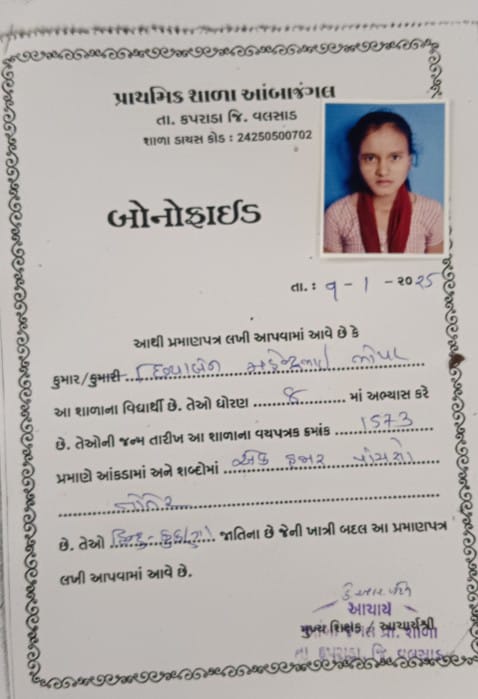 પ્રાથમિક શાળા આંબાજંગલ
તા. કપરાડા જિ. વલસાડ
શાળા ડાયસ કોડ : 24250500702
બોનોફાઈડ
તા. : ૧ - 1 - ૨૦૨5
આથી પ્રમાણપત્ર લખી આપવામાં આવે છે કે
કુમાર/કુમારી
આ શાળાના વિદ્યાર્થી છે. તેઓ ધોરણ ૪ માં અભ્યાસ કરે
છે. તેઓની જન્મ તારીખ આ શાળાના વયપત્રક ક્રમાંક 1573
પ્રમાણે આંકડામાં અને શબ્દોમાં એક હજાર પાંચસો
છે. તેઓ હિન્દુ-કુકણા જાતિના છે જેની ખાત્રી બદલ આ પ્રમાણપત્ર
લખી આપવામાં આવે છે.
આચાર્ય
મુખ્ય શિક્ષક / આચાર્યશ્રી
તા કપરાડા, જિ. વલસાડ